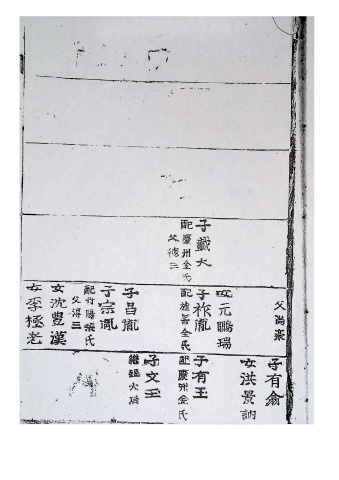 子載大
配慶州金氏
父德三
父尚豪
女元鵬瑞
子祚胤
配旌善金氏
子昌胤
子宗胤
配丹陽張氏
父得三
女沈豊漢
女李極老
子有
女洪景訥
子有玉
配慶州金氏
子文玉